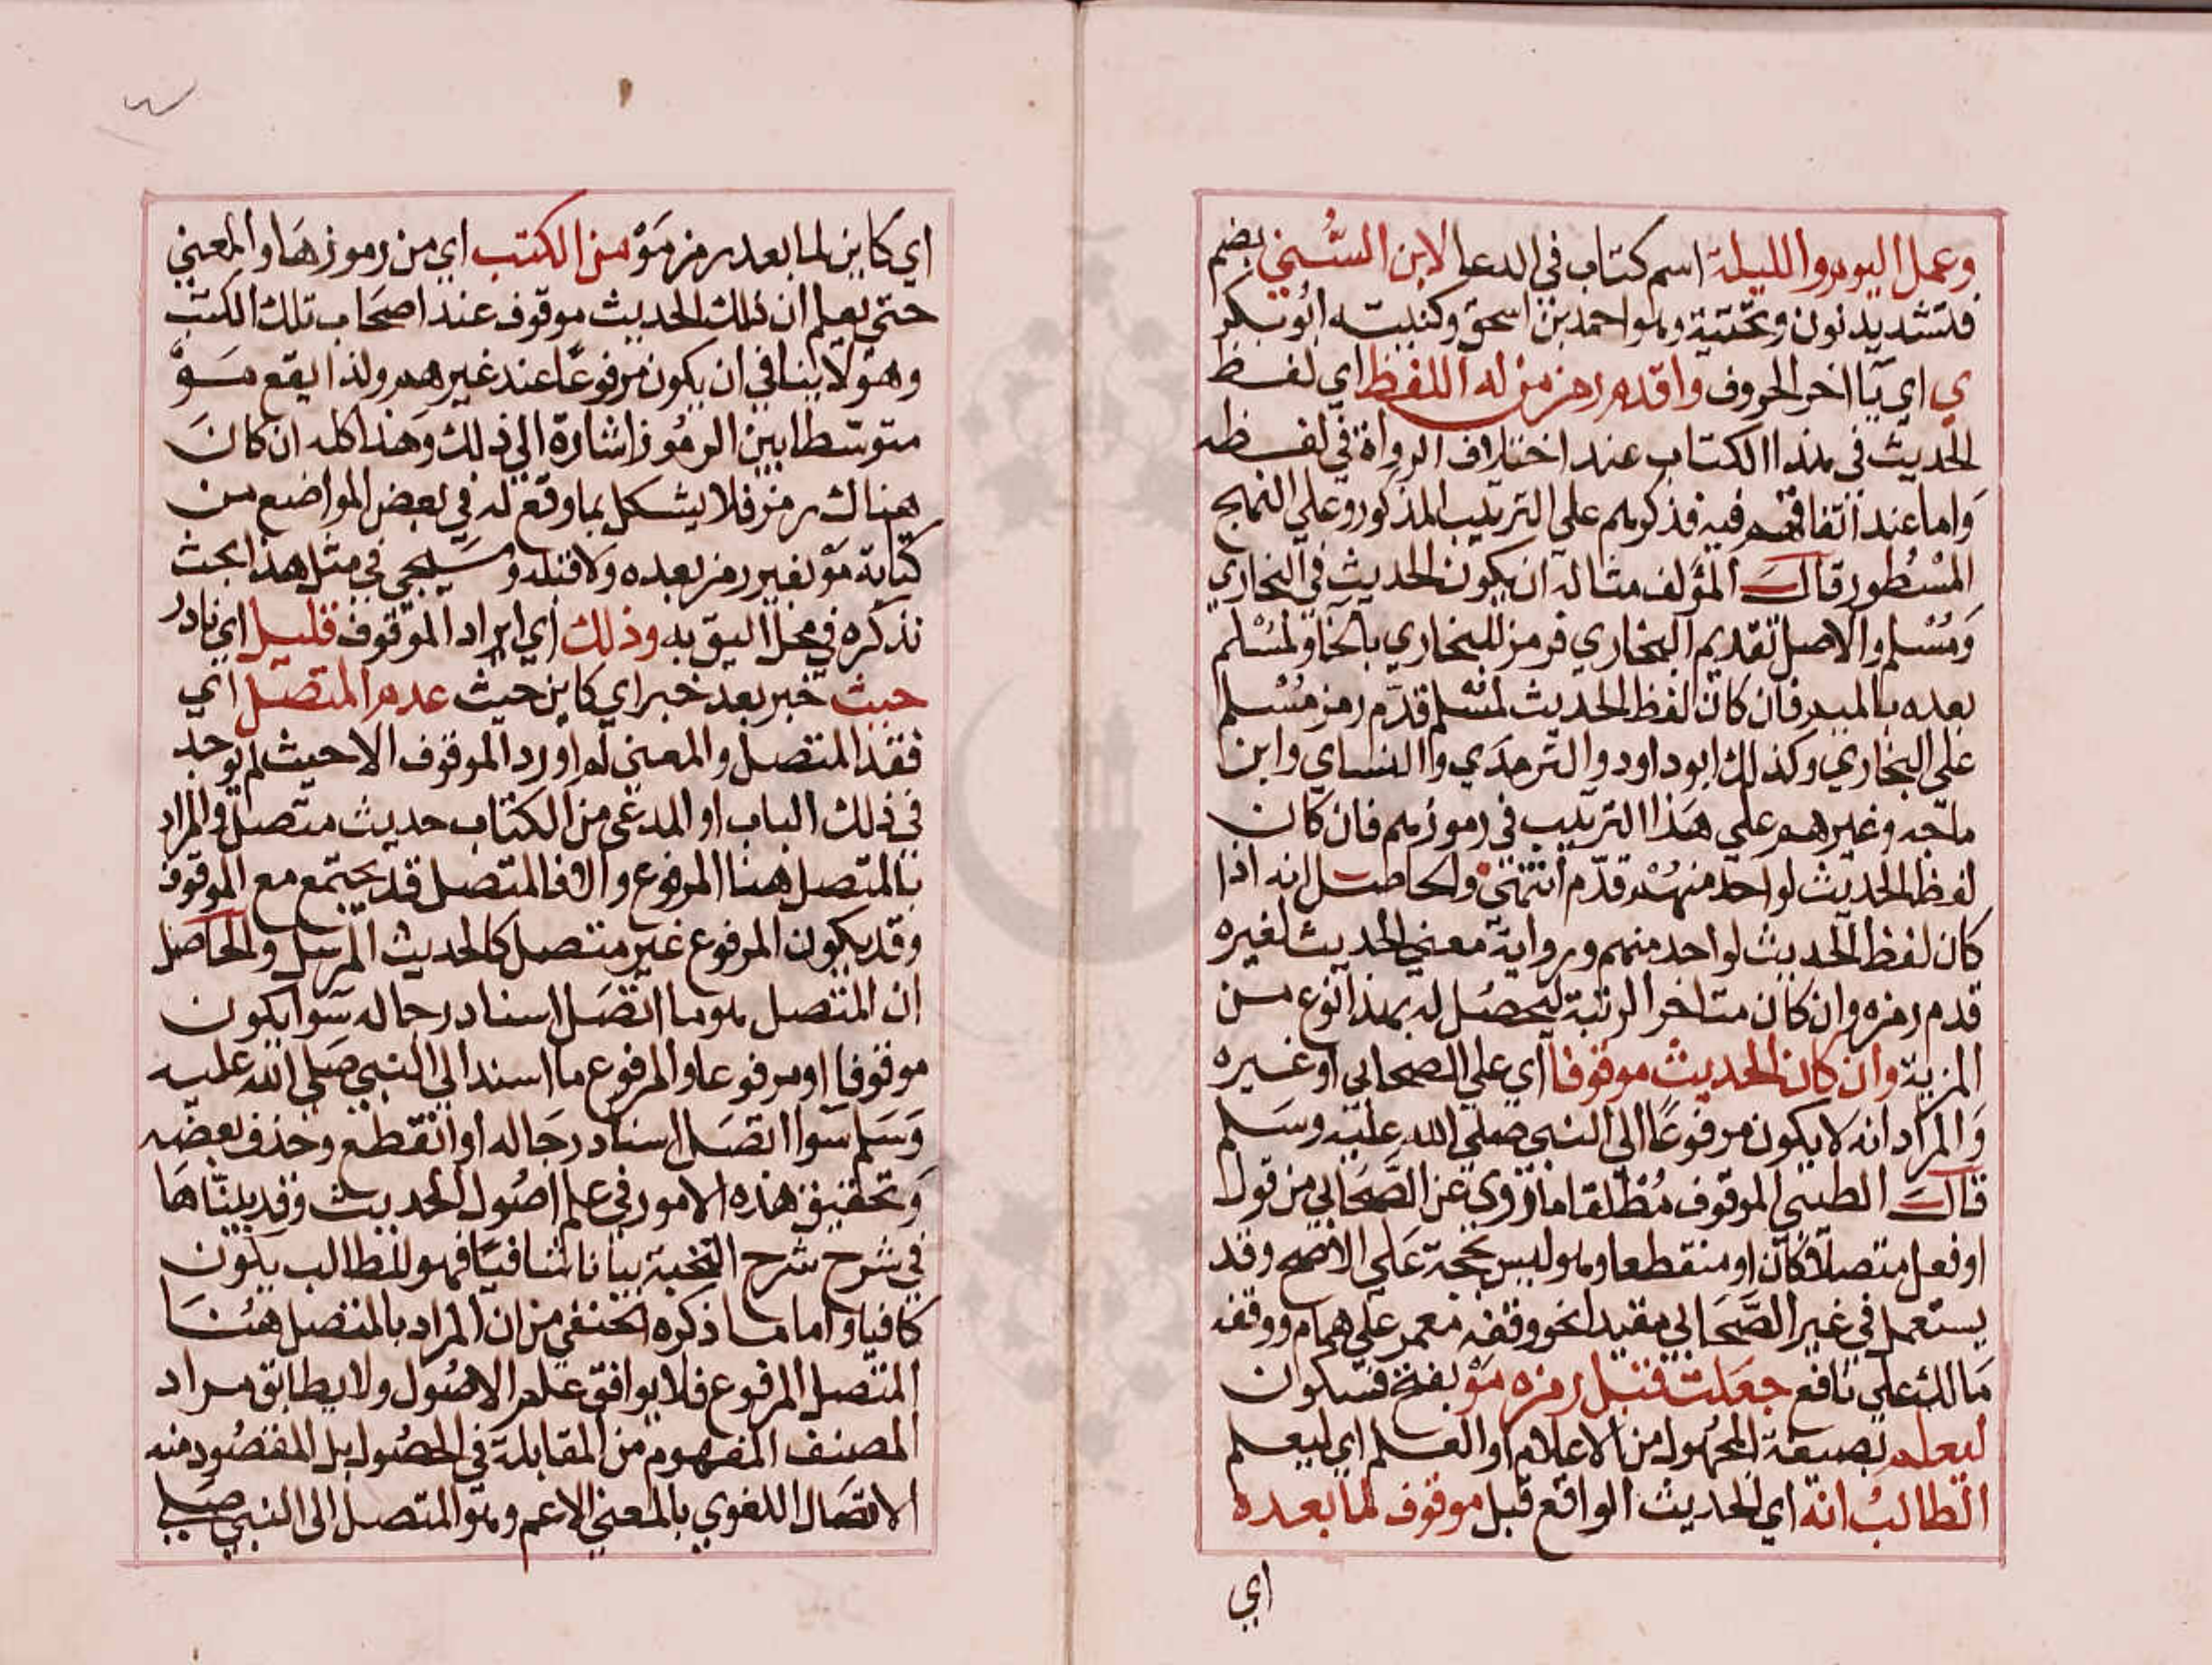 وعمل اليوم والليلة اسم كتاب في الدعا لابن السُّني بضم
فتشديد نون وتحتية وهو احمد بن اسحق وكنيته ابو بكر
ي اي يا اخر الحروف واقدم رمز من له اللفظ اي لفظ
الحديث في هذا الكتاب عند اختلاف الرواة في لفظه
واما عند اتفاقهم فيه فذكرهم علي الترتيب المذكور وعلي النهج
المسْطور قال المؤلف مثاله ان يكون الحديث في البخاري
ومُسْلم والاصل تقديم البخاري فرمز للبخاري بالخا ولمسْلم
بعده بالميم فان كان لفظ الحديث لمسْلم قدّم رمز مُسْلم
علي البخاري وكذلك ابو داود والترمذي واالنساي وابن
ماجه وغيرهم علي هذا الترتيب في رموزهم فان كان
لفظ الحديث لواحد منهُمْ قدّم انتهي والحاصل انه اذا
كان لفظ الحديث لواحد منهم ورواية معني الحديث لغيره
قدم رمزه وان كان متاخر الرتبة ليحصُل له بهذا نوع من
المزية وان كان الحديث موقوفا اي علي الصحابي او غيره
والمراد انه لا يكون مرفوعًا الي النبي صلي الله عليه وسلم
قال الطيبي الموقوف مُطلقا ما رُوي عن الصَّحابي من قول
او فعل متصلا كان او منقطعا وهو ليس بحجة علي الاصح وقد
يستعمل في غير الصَّحابي مقيدا نحو وقفه معمر علي همام ووقفه
مالك علي نافع جعلت قبل رمزه مَوْ بفتح فسكون
ليعلم بصيغة المجهُول من الاعلام او العلم اي ليعلم
الطالبُ انه اي الحديث الواقع قبل موقوف لما بعده
اي
اي كاين لما بعد رمز مَوْ من الكتب اي من رموزها والمعني
حتي يعلم ان ذلك الحديث موقوف عند اصحاب تلك الكتب
وهو لا ينافي ان يكون مرفوعًا عند غيرهم ولذا يقع مَوْ
متوسّطا بين الرمُوز اشارة الي ذلك وهذا كله ان كان
هناك رمز فلا يشكل بما وقع له في بعض المواضع من
كتابة مَوْ بغير رمز بعده ولا قبله وسيجي في مثل هذا بحث
نذكره في محل اليق به وذلك اي ايراد الموقوف قليل اي نادر
حيث خبر بعد خبر اي كاين حيث عدم المتصل اي
فقد المتصل والمعني لم اورد الموقوف الا حيث لم يوجد
في ذلك الباب او المدعي من الكتاب حديث متصل والمراد
بالمتصل هنا المرفوع والا فالمتصل قد يجتمع مع الموقوف
وقد يكون المرفوع غير متصل كالحديث المرسل والحاصل
ان المتصل هو ما اتصل اسناد رجاله سوا يكون
موقوفا او مرفوعا والمرفوع ما اسند الي النبي صلي الله عليه
وسلم سوا اتصل اسناد رجاله او انقطع وحذف بعضه
وتحقيق هذه الامور في علم اصُول الحديث وقد بيناها
في شرح شرح النخبة بيانا شافيًا فهو للطالب يكون
كافيا واما ما ذكره الحنفي من ان المراد بالمتصل هنا
المتصل المرفوع فلا يوافق علم الاصُول ولا يطابق مراد
المصنف المفهوم من المقابلة في الحصُول بل المقصُود منه
الاتصال اللغوي بالمعني الاعم وهو المتصل الي النبي صلي